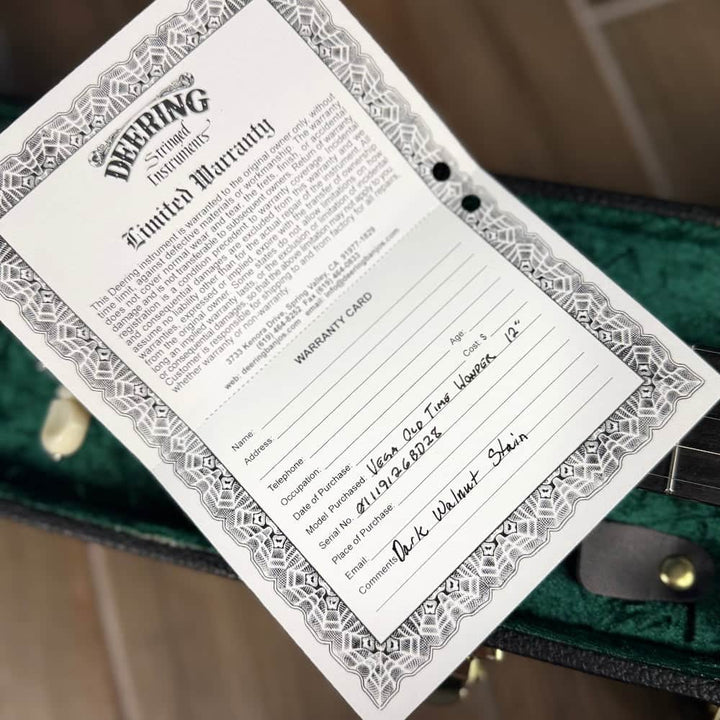 DEERING
Stringed
Instruments'
Limited Warranty
This Deering instrument is warranted to the original owner only, without
time limit, against defective materials or workmanship. The warranty
does not cover normal wear and tear, the frets, finish, or accidental
damage and is not transferable to subsequent owners. Return of warranty
registration is a condition precedent to warranty coverage. Incidental
and consequential damages are excluded from this warranty and we
assume no liability other than for the actual repair of the instrument. All
warranties, expressed or implied expire with the transfer of ownership
from the original owner. Some states do not allow limitations on how
long an implied warranty lasts or the exclusion of limitation of incidental
or consequential damages, so that the above limitation may not apply to you.
Customer is responsible for shipping to and from factory for all repairs,
whether warranty or non-warranty.
3733 Kenora Drive, Spring Valley, CA. 91977-1829
(619) 464-8252 Fax (619) 464-0833
web: deeringbanjos.com email: info@deeringbanjos.com
WARRANTY CARD
Name:
Address: Age:
Telephone: Cost: $
Occupation:
Date of Purchase:
Model Purchased: VEGA OLD TIME WONDER 12"
Serial No. 011191268D28
Place of Purchase:
Email:
Comments Dark Walnut Stain